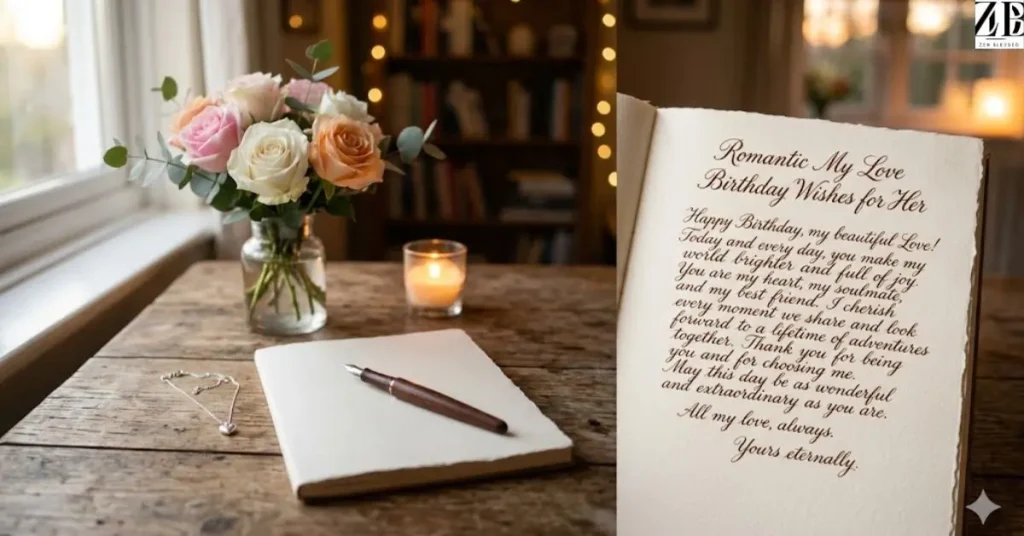 ZEB
ZEN BLESSED
Romantic My Love
Birthday Wishes for Her
Happy Birthday, my beautiful Love!
Today and every day, you make my
world brighter and full of joy.
You are my heart, my soulmate,
and my best friend. I cherish
every moment we share and look
forward to a lifetime of adventures
together. Thank you for being
you and for choosing me.
May this day be as wonderful
and extraordinary as you are.
All my love, always.
Yours eternally.